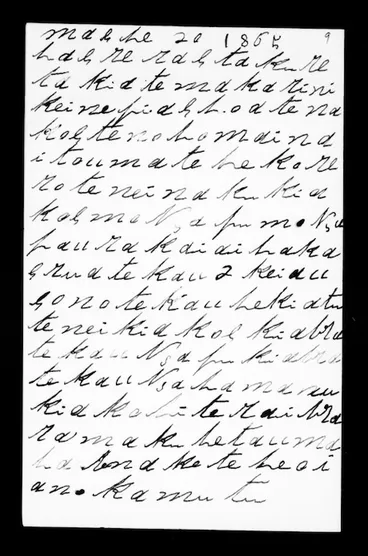 maehe 20 1865 9
hae re rae ta ku re
ta ki a te ma ka ri ni
kei ne pi a e h. o a te na
koe te no ho mai na
i to u ma te he ko re
ro te nei na ku ki a
koe mo Nga pu mo Nga
pau ra ka i di ha ka
e rua te kau 2 kei au
e o no te kau he ki a tu
te nei ki a koe ki a
te kau Nga pu ki a
te kau Nga ha ma nu
ki a ko hi te ra i
ra ma ku he tau ma
ha Ana ke te he o i
ano ka mu tu